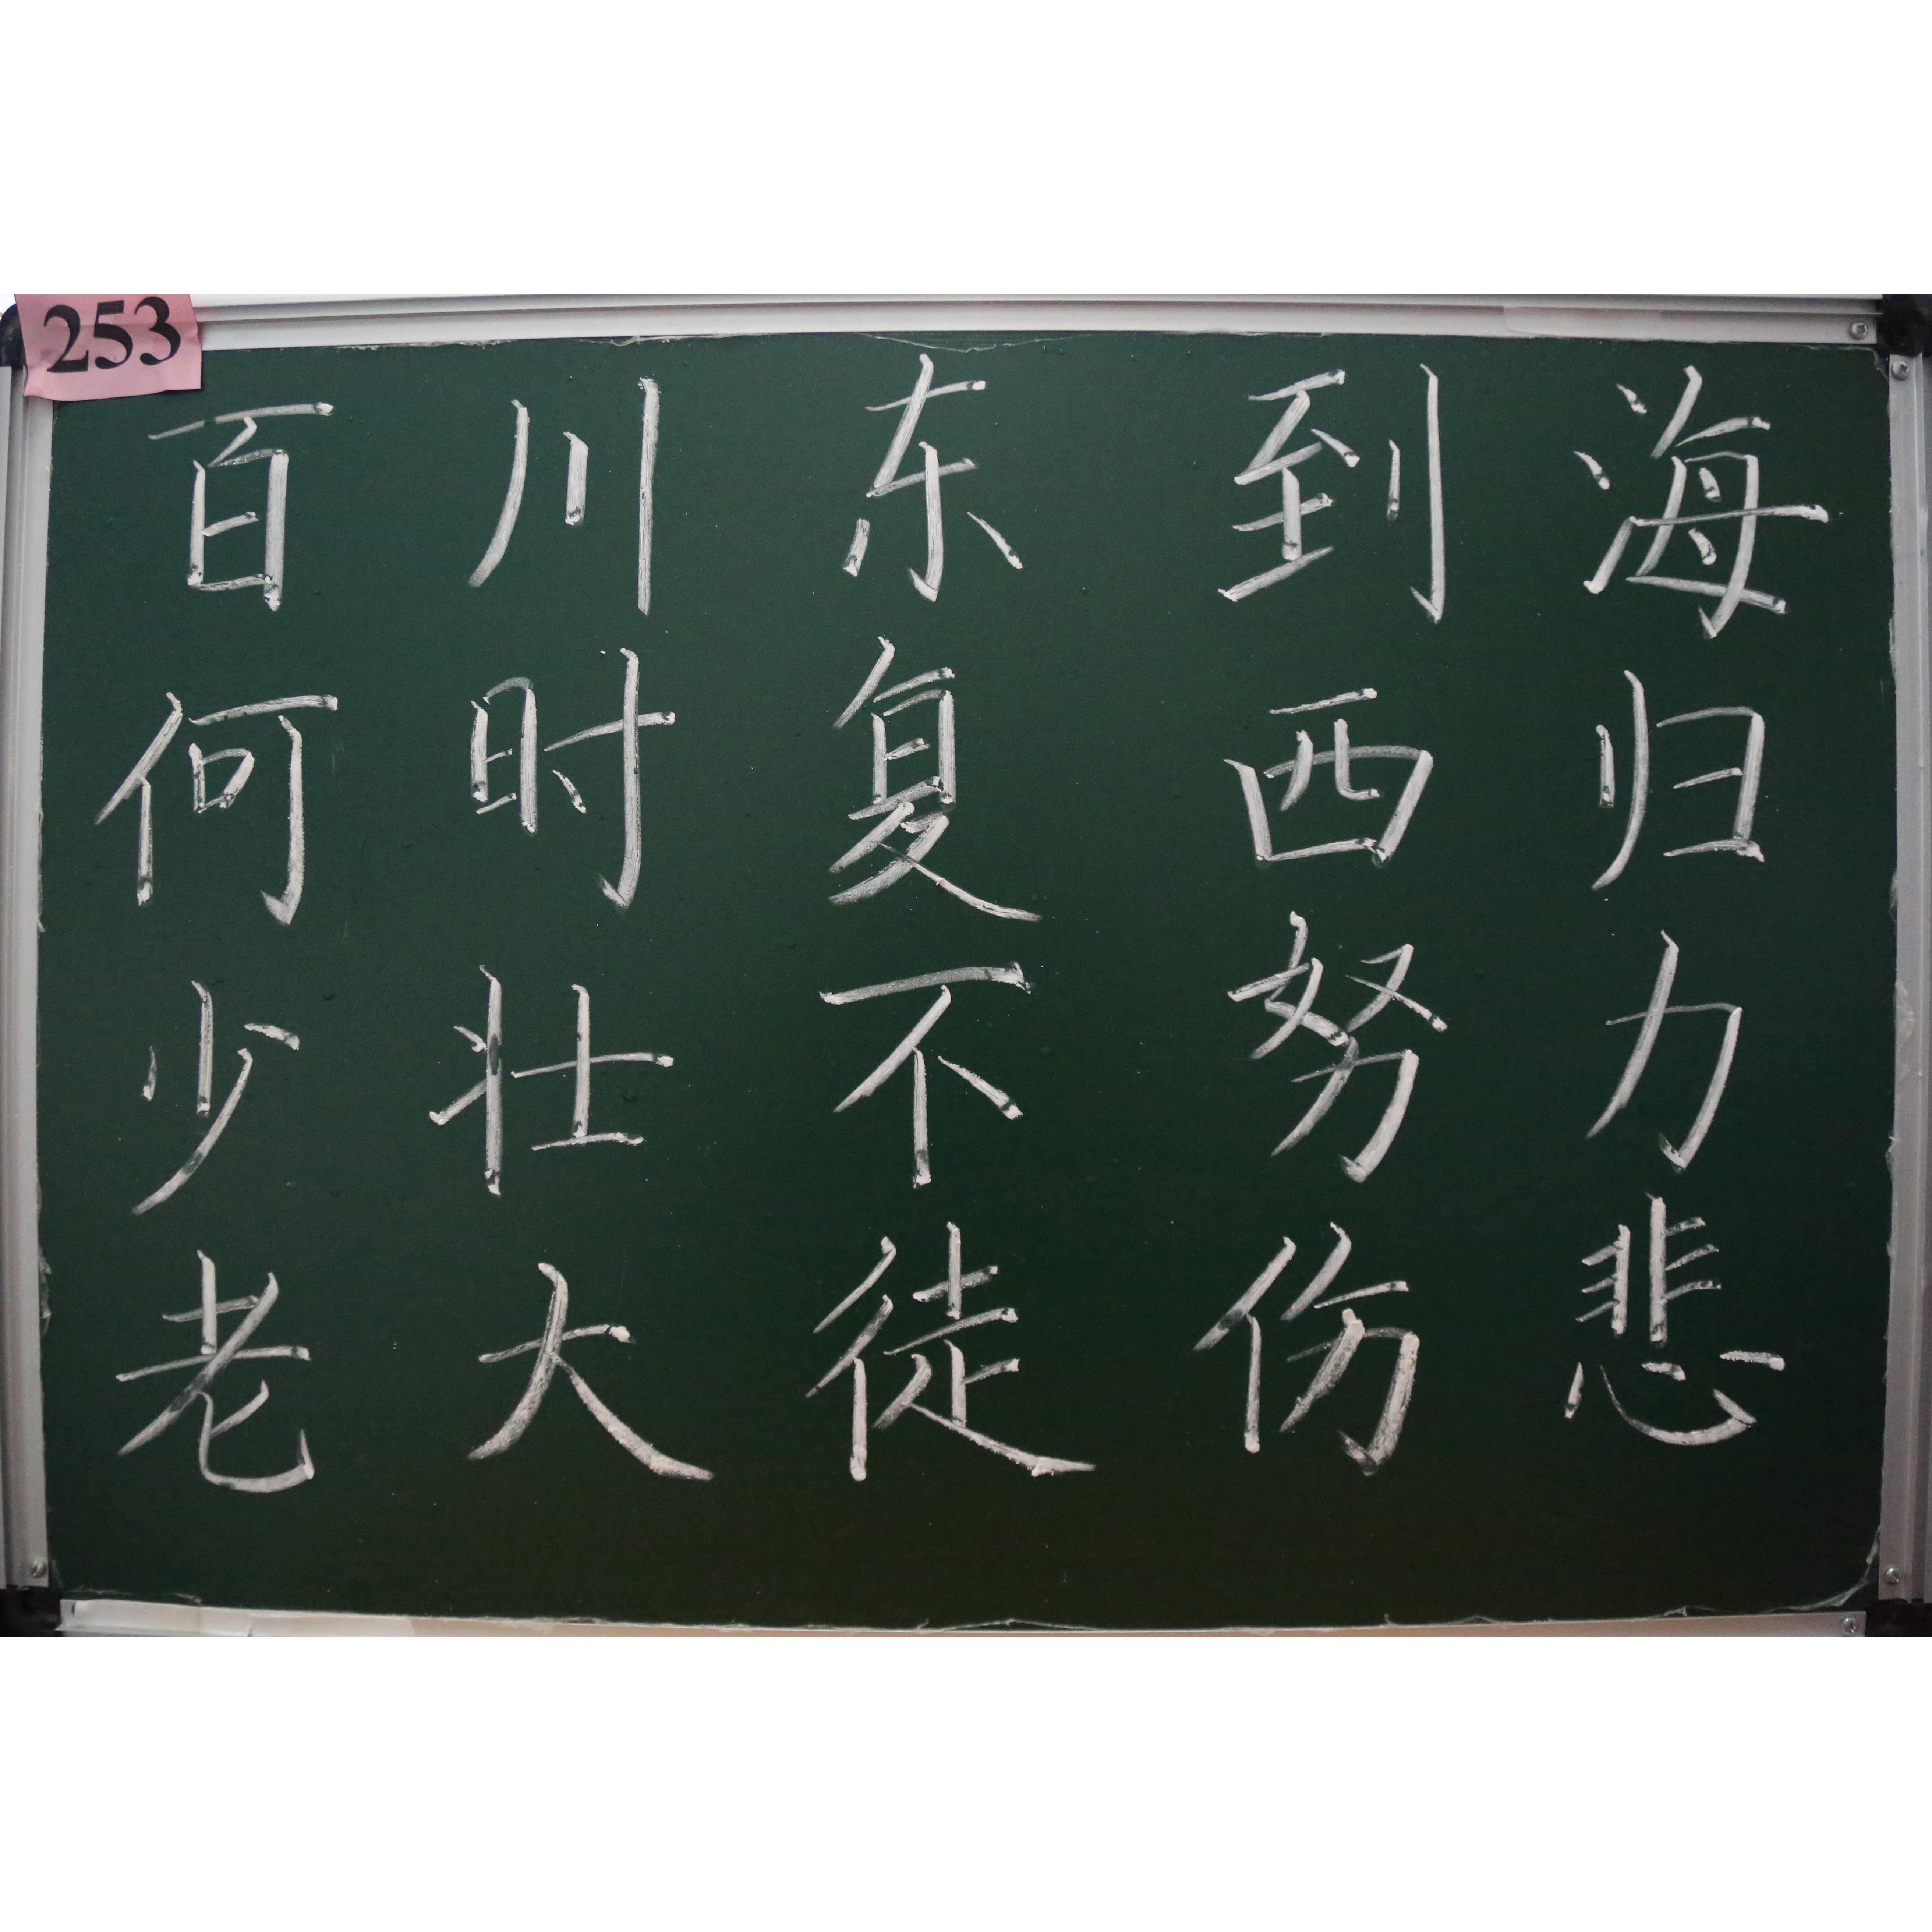 253
百川东到海
何时复西归
少壮不努力
老大徒伤悲